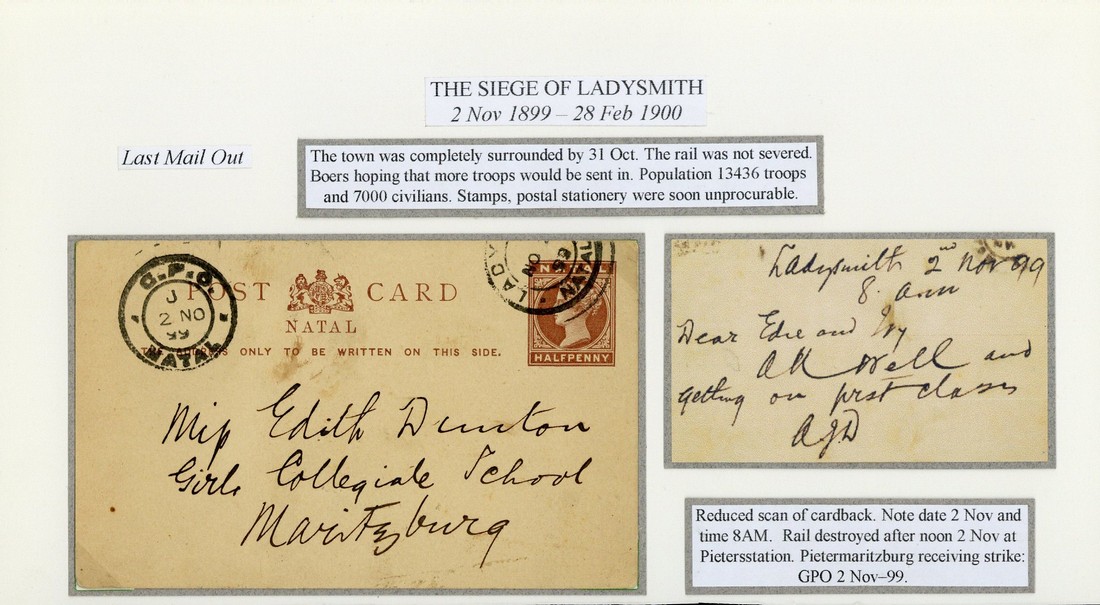 THE SIEGE OF LADYSMITH
2 Nov 1899 – 28 Feb 1900
Last Mail Out
The town was completely surrounded by 31 Oct. The rail was not severed.
Boers hoping that more troops would be sent in. Population 13436 troops
and 7000 civilians. Stamps, postal stationery were soon unprocurable.
G.P.O.
J
2 NO
99
NATAL
POST CARD
NATAL
THE ADDRESS ONLY TO BE WRITTEN ON THIS SIDE.
LADY
NO
99
NATAL
HALFPENNY
Miss Edith Dunton
Girls Collegiate School
Maritzburg
Ladysmith 2nd Nov 99
8. am
Dear Edie and
All Well and
getting on first class
AJD
Reduced scan of cardback. Note date 2 Nov and
time 8AM. Rail destroyed after noon 2 Nov at
Pietersstation. Pietermaritzburg receiving strike:
GPO 2 Nov–99.